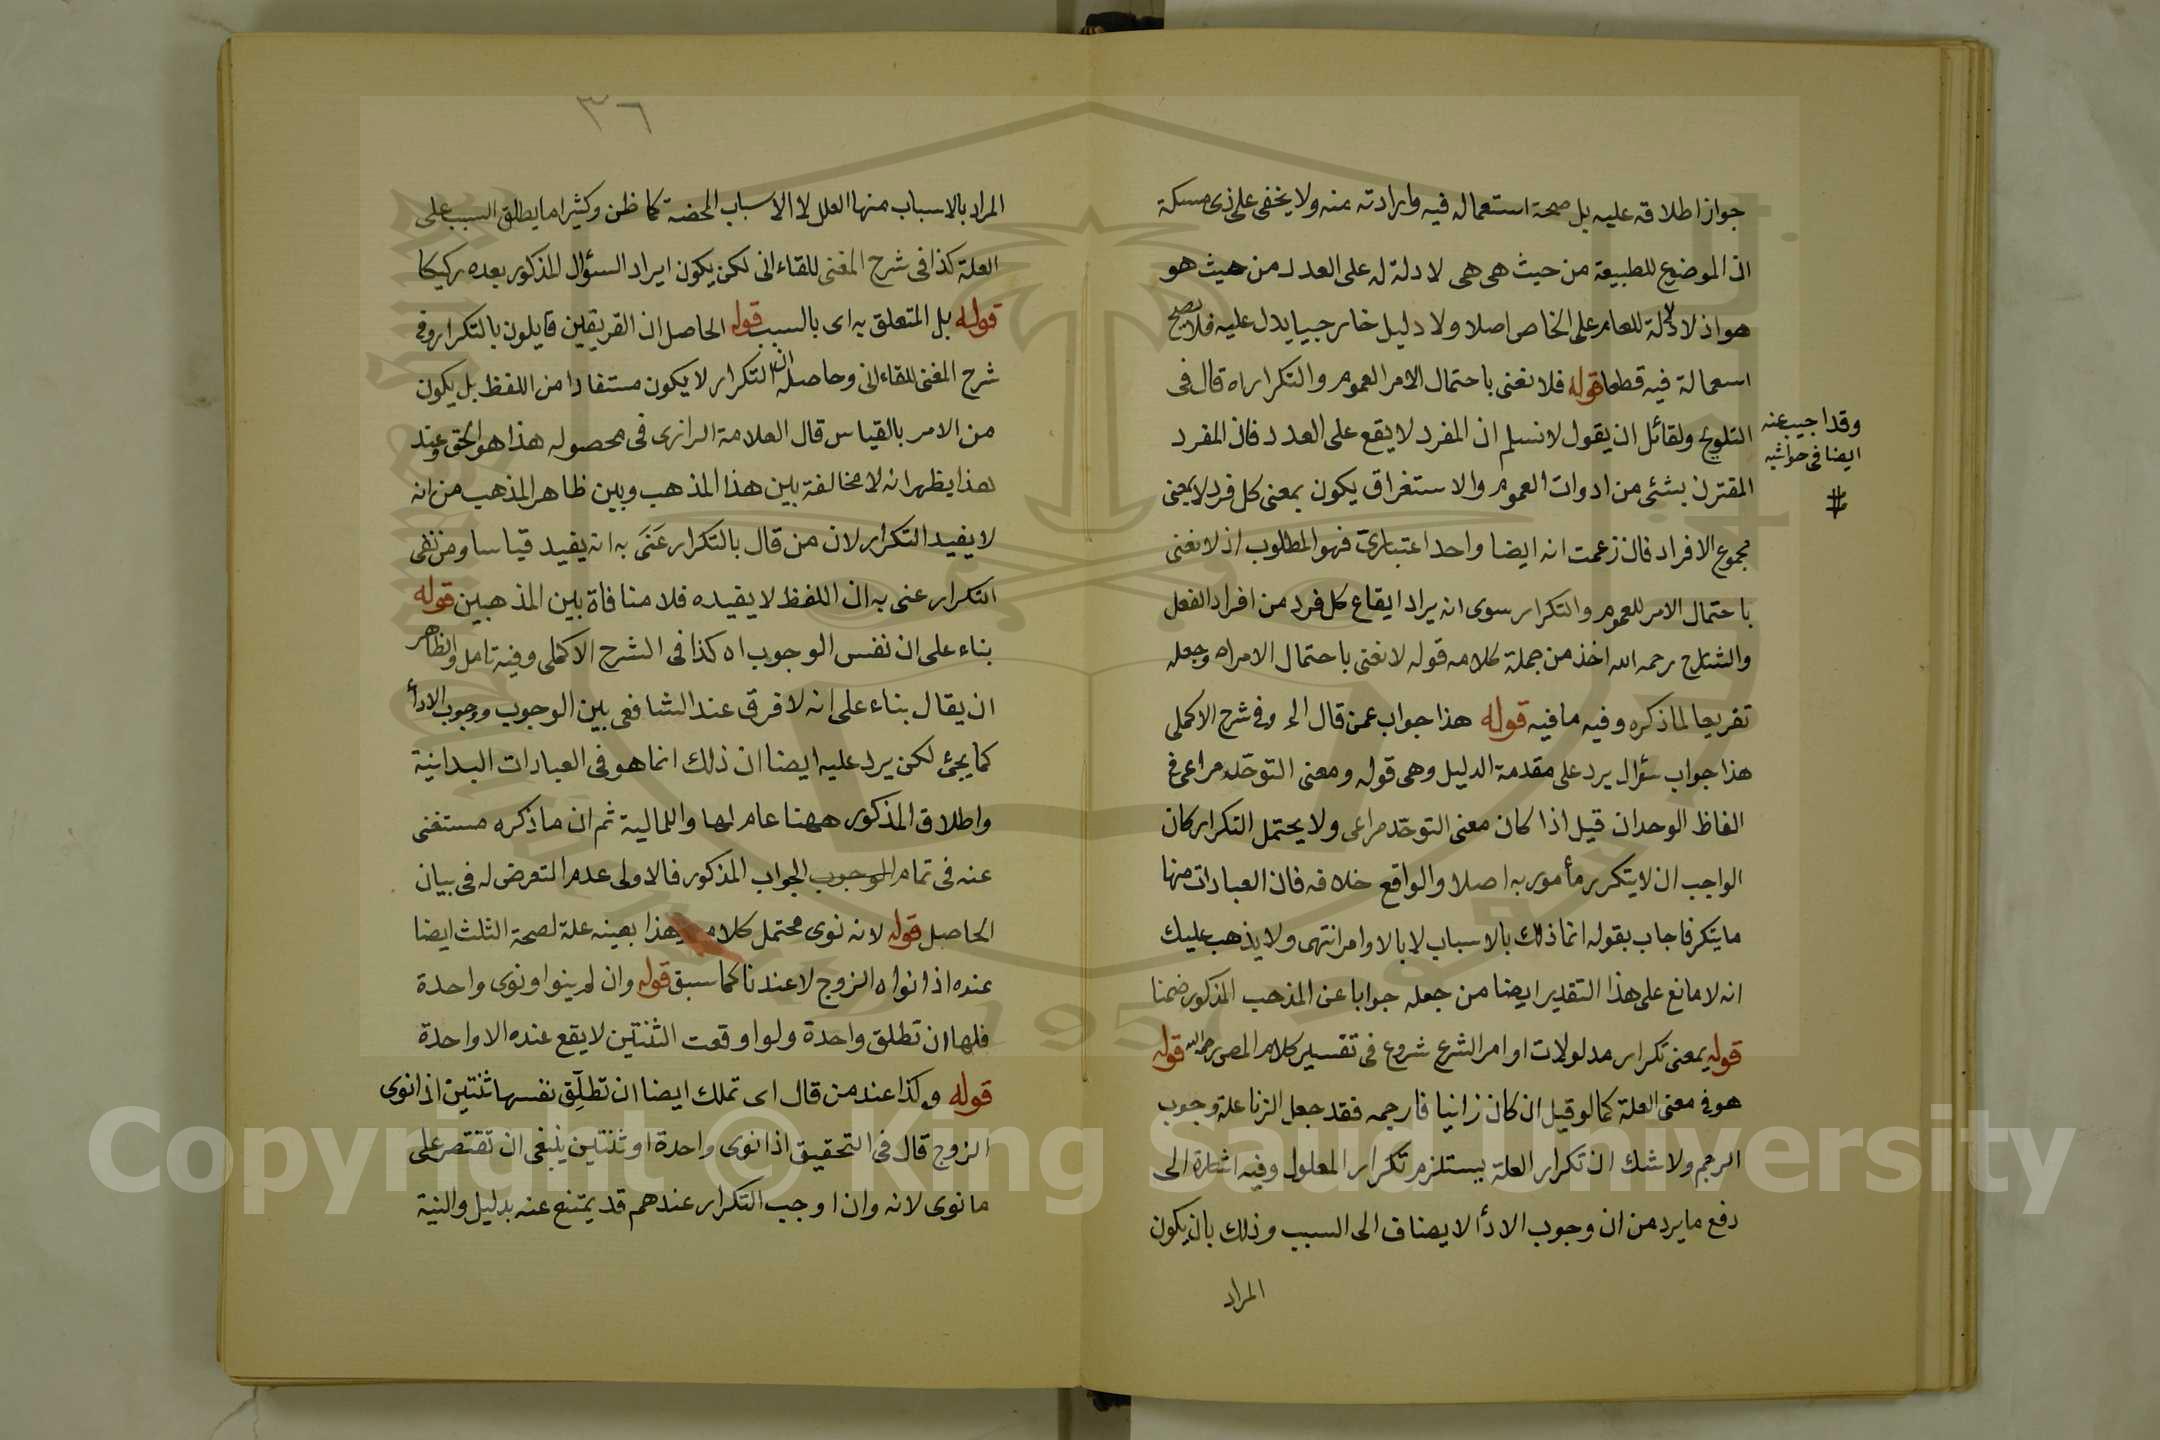 جواز اطلاقه عليه بل صحة استعماله فيه وارادته منه ولا يخفى على ذى مسكة
ان الموضوع للطبيعة من حيث هى هى لا دلة له على العدد من حيث هو
هو اذ لا دلالة للعام على الخاص اصلا ولا دليل خارجيا يدل عليه فلا يصح
اسعمالة فيه قطعا قوله فلا نعنى باحتمال الامر العموم والتكرار اه قال فى
التلويح ولقائل ان يقول لا نسلم ان المفرد لا يقع على العدد فان المفرد
المقترن بشئ من ادوات العموم والاستغراق يكون بمعنى كل فرد لا بمعنى
مجموع الافراد فان زعمت انه ايضا واحد اعتبارىّ فهو المطلوب اذ لا نعنى
باحتمال الامر للعموم والتكرار سوى انه يراد ايقاع كل فرد من افراد الفعل
والشارح رحمه الله اخذ من جملة كلامه قوله لا نعنى باحتمال الامر اه وجعله
تفريعا لما ذكره وفيه ما فيه قوله هذا جواب عمن قال الخ وفى شرح الاكملى
هذا جواب سؤال يرد على مقدمة الدليل وهى قوله ومعنى التوحّد مراعى فى
الفاظ الوحدان قيل اذا كان معنى التوحّد مراعى ولا يحتمل التكرار كان
الواجب ان لا يتكرر مأمور به اصلا والواقع خلافه فان العبادات منها
ما يتكر فاجاب بقوله انما ذلك بالاسباب لا بالاوامر انتهى ولا يذهب عليك
انه لا مانع على هذا التقدير ايضا من جعله جوابا عن المذهب المذكور ضمنا
قوله بمعنى تكرار مدلولات اوامر الشرع شروع فى تفسير كلام المص رحمه الله قوله
هو فى معنى العلة كما لو قيل ان كان زانيا فارجمه فقد جعل الزنا علة وجوب
الرجم ولا شك ان تكرار العلة يستلزم تكرار المعلول وفيه اشارة الى
دفع ما يرد من ان وجوب الادأ لا يضاف الى السبب وذلك بان يكون
المراد
وقد اجيب عنه
ايضا فى حواشيه
٣٦
المراد بالاسباب منها العلل لا الاسباب المحضة كما ظن وكثيرا ما يطلق السبب على
العلة كذا فى شرح المغنى للقاءانى لكن يكون ايراد السؤال المذكور بعده ركيكا
قوله بل المتعلق به اى بالسبب قوله الحاصل ان الفريقين قايلون بالتكرار وفى
شرح المغنى للقاءانى وحاصله ان التكرار لا يكون مستفادا من اللفظ بل يكون
من الامر بالقياس قال العلامة الرازى فى محصوله هذا هو الحق وعند
هذا يظهر انه لا مخالفة بين هذا المذهب وبين ظاهر المذهب من انه
لا يفيد التكرار لان من قال بالتكرار عَنَى به انه يفيد قياسا ومن نفى
التكرار عنى به ان اللفظ لا يفيده فلا منافاة بين المذهبين قوله
بناء على ان نفس الوجوب اه كذا فى الشرح الاكملى وفيه تامل والظاهر
ان يقال بناء على انه لا فرق عند الشافعى بين الوجوب ووجوب الادأ
كما يجئ لكن يرد عليه ايضا ان ذلك انما هو فى العبادات البدانية
واطلاق المذكور ههنا عام لها وللمالية ثم ان ما ذكره مستغنى
عنه فى تمام الوجوب الجواب المذكور فالاولى عدم التعرض له فى بيان
الحاصل قوله لانه نوى محتمل كلامه هذا بعينه علة لصحة الثلث ايضا
عنده اذا نواه الزوج لا عندنا كما سبق قوله وان لم ينوا ونوى واحدة
فلها ان تطلق واحدة ولو اوقعت الثنتين لا يقع عنده الا واحدة
قوله وكذا عند من قال اى تملك ايضا ان تطلّق نفسها ثنتين اذا نوى
الزوج قال فى التحقيق اذا نوى واحدة او ثنتين ينبغى ان تقتصر على
ما نوى لانه وان اوجب التكرار عندهم قد يمتنع عنه بدليل والنية
Copyright © King Saud University
1957